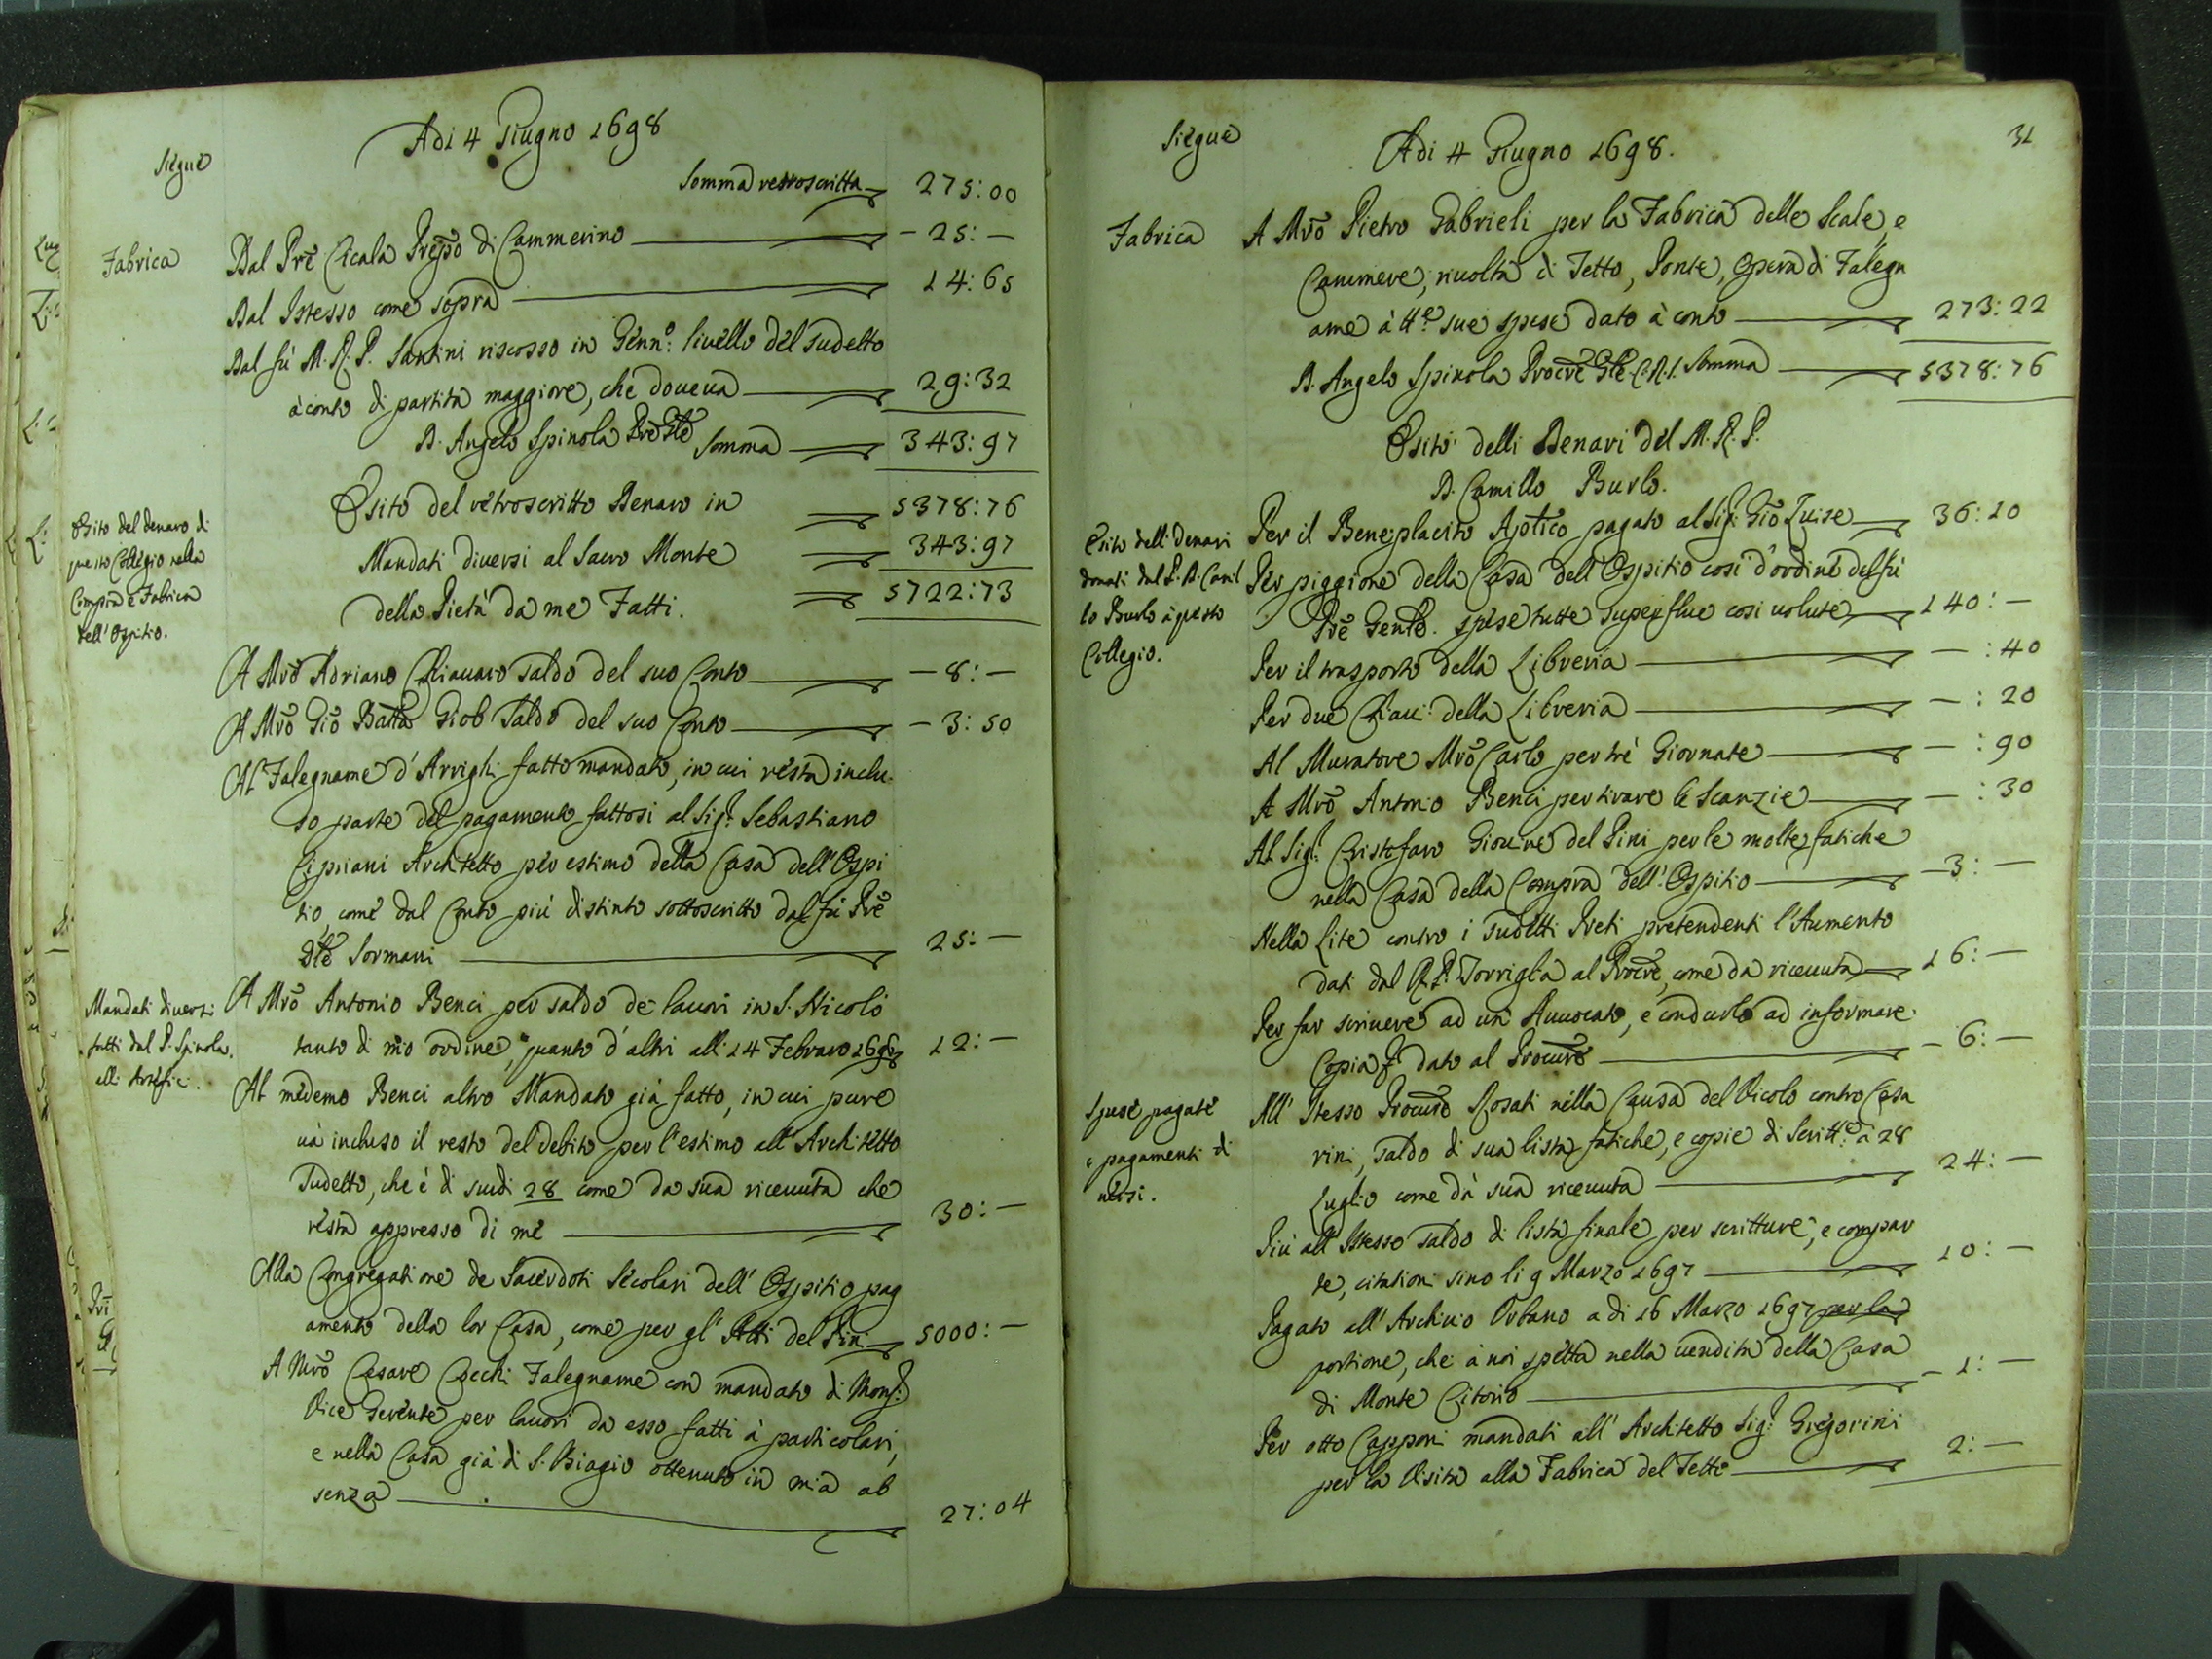 Siegue
Adi 4 Giugno 1698
Somma retroscritta 275:00
Fabrica
Dal Prē Cicala Prep̄o di Cammerino — 25: —
Dal Istesso come sopra 14:65
Dal fù M. R. P. Santini riscosso in Genn.º livello del sudetto
à conto di partita maggiore, che doueua 29:32
D. Angelo Spinola Somma 343:97
Esito del denaro di
questo Collegio nella
Compra e Fabrica
dell'Ospitio.
Esito del retroscritto Denaro in 5378:76
Mandati diuersi al Sacro Monte 343:97
della Pietà da me Fatti. 5722:73
A Mrō Adriano Chiauaro saldo del suo Conto — 8: —
A Mrō Giō Batta Giob Saldo del suo Conto — 3:50
Al Falegname d'Arrighi fatto mandato, in cui resta inclu-
so parte del pagamento fattosi al Sig.r Sebastiano
Cipriani Architetto per estimo della Casa dell'Ospi
tio, come dal Conto più distinto sottoscritto dal fù Prē
Gle Sormani 25: —
Mandati diuersi
fatti dal P. Spinola
alli Artefici.
A Mrō Antonio Benci per saldo de lauori in S. Nicolò
tanto di mio ordine, quanto d'altri all: 14 Febraro 1698 12: —
Al medemo Benci altro Mandato già fatto, in cui pure
uà incluso il resto del debito per l'estimo all'Architetto
Sudetto, che è di scudi 28 come da sua riceuuta che
resta appresso di me 30: —
Alla Congregatione de Sacerdoti Secolari dell'Ospitio pag
amento della lor Casa, come per gl'Atti del Pini 5000: —
A Mrō Cesare Cecchi Falegname con mandato di Mons.r
Vice Gerente per lauori da esso fatti à particolari,
e nella Casa già di S. Biagio ottenuto in mia ab
senza 27:04
Siegue
Adi 4 Giugno 1698.
31
Fabrica
A Mrō Pietro Gabrieli per la Fabrica delle Scale, e
Cammere, riuolta di Tetto, Ponte, Opera di Falegn
ame à tt.e sue spese dato à conto 273:22
D. Angelo Spinola Procrē Gle C.R.S. Somma 5378:76
Esito delli Denari del M. R. P.
D. Camillo Burlo.
Esito delli denari
donati dal P. D. Camil
lo Burlo à questo
Collegio.
Per il Beneplacito Apōtico pagato al Sig. Giō Luise 36:20
Per piggione della Casa dell'Ospitio così d'ordine del fù
Prē Genle. spese tutte superflue così uolute 140: —
Per il trasporto della Libreria — :40
Per due Chiaui della Libreria — :20
Al Muratore Mrō Carlo per trè Giornate — :90
A Mrō Antonio Benci per tirare le Scanzie — :30
Al Sig.r Cristofaro Giouine del Pini per le molte fatiche
nella Casa della Compra dell'Ospitio — 3: —
Nella Lite contro i sudetti Preti pretendenti l'Aumento
dati dal R. P. Torriglia al Procrē, come da riceuuta 16: —
Per far scriuere ad un'Auuocato, e condurlo ad informare
Copia dato al Procurē — 6: —
Spese pagate
e pagamenti di
uersi.
All'Istesso Procurē Rosati nella Causa del Vicolo contro Casa
rini, saldo di sua lista fatiche, e copie di Scritt.e à 28
Luglio come dà sua riceuuta 24: —
Più all'Istesso saldo di lista finale per scritture, e compar
te, citationi sino li 9 Marzo 1697 10: —
Pagato all'Archiuio Urbano a di 16 Marzo 1697 per la
portione, che à noi spetta nella uendita della Casa
di Monte Citorio — 1: —
Per otto Capponi mandati all'Architetto Sig.r Gregorini
per la Visita alla Fabrica del Tetto 2: —